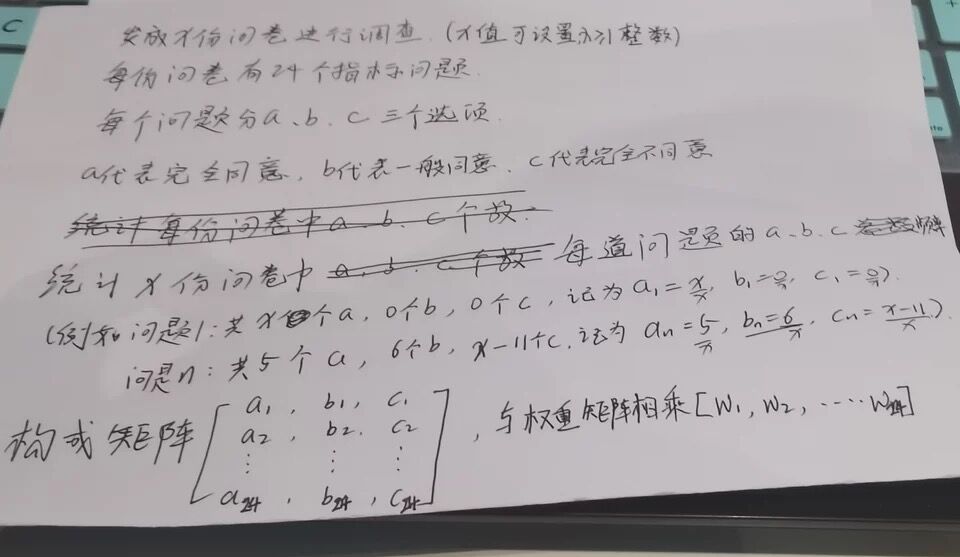 发放x份问卷进行调查.(x值可设置x≥1整数)
每份问卷有24个指标问题.
每个问题分a、b、c三个选项.
a代表完全同意,b代表一般同意,c代表完全不同意
统计每份问卷中a、b、c个数.
统计x份问卷中a、b、c个数每道问题的a、b、c频率
(例如问题1:共x个a,0个b,0个c,记为a₁=x/x,b₁=0/x,c₁=0/x).
问题n:共5个a,6个b,x-11个c.记为an=5/x,bn=6/x,cn=x-11/x).
构成矩阵[a₁,b₁,c₁
a₂,b₂,c₂
⋮ ⋮ ⋮
a₂₄,b₂₄,c₂₄],与权重矩阵相乘[W₁,W₂,·····W₂₄]